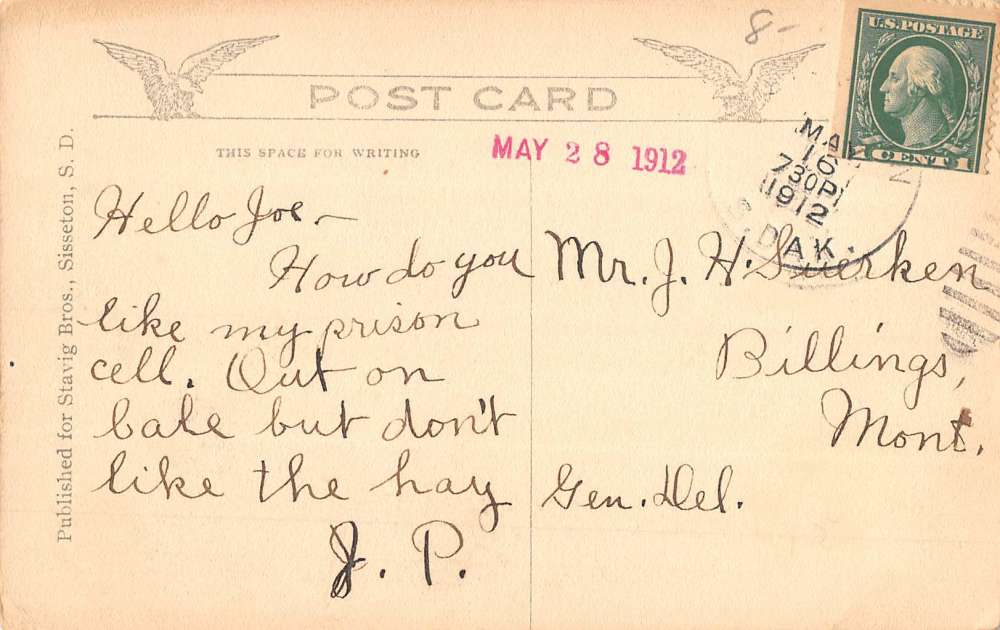 8-
POST CARD
U.S. POSTAGE
1 CENT 1
THIS SPACE FOR WRITING
MAY 28 1912
16
730P
1912
DAK.
Published for Stavig Bros., Sisseton, S. D.
Hello Joe—
How do you
like my prison
cell. Out on
bale but don't
like the hay
J. P.
Mr. J. H.
Billings,
Mont.
Gen. Del.